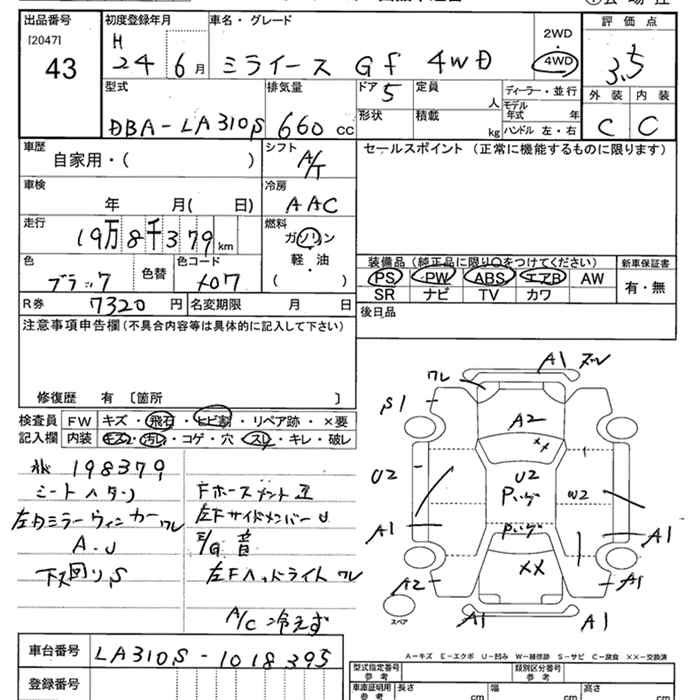 出品番号
[2047]
43
初度登録年月
H
24 6月
車名・グレード
ミライース Gf 4WD
2WD
・
4WD
評価点
3.5
外装 内装
C C
型式
DBA-LA310S
排気量
660 cc
ドア
5
形状
定員
人
積載
kg
ディーラー・並行
モデル
年式 年
ハンドル 左・右
車歴
自家用・( )
シフト
A/T
セールスポイント (正常に機能するものに限ります)
車検
年 月( 日)
冷房
AAC
走行
19万8千379km
燃料
ガソリン
軽・油
( )
色
ブラック
色替
色コード
X07
装備品(純正品に限り○をつけてください)
PS PW ABS エアB AW
SR ナビ TV カワ
新車保証書
有・無
R券 7320円
名変期限 月 日
後日品
注意事項申告欄(不具合内容等は具体的に記入して下さい)
修復歴 有 〔箇所 〕
検査員
記入欄
FW キズ・飛石・ヒビ割・リペア跡・×要
内装 キズ・汚レ・コゲ・穴・スレ・キレ・破レ
198379
シートヘタリ
左ドミラーウィンカーワレ
A.U
下廻りS
左Fサイドメンバー U
E/G 音
左Fヘッドライト ワレ
A/C冷えず
A1
ワレ
S1
A2
××
U2
U2
Pハゲ
W2
Pハゲ
A1
A1
××
A2
A1
スペア
A1
A1
A-キズ E-エクボ U-凹み W-補修跡 S-サビ C-腐食 ××-交換済
車台番号 LA310S-1018395
登録番号
型式指定番号
参考
類別区分番号
参考
車庫証明用
参考
長さ cm
幅 cm
高さ cm